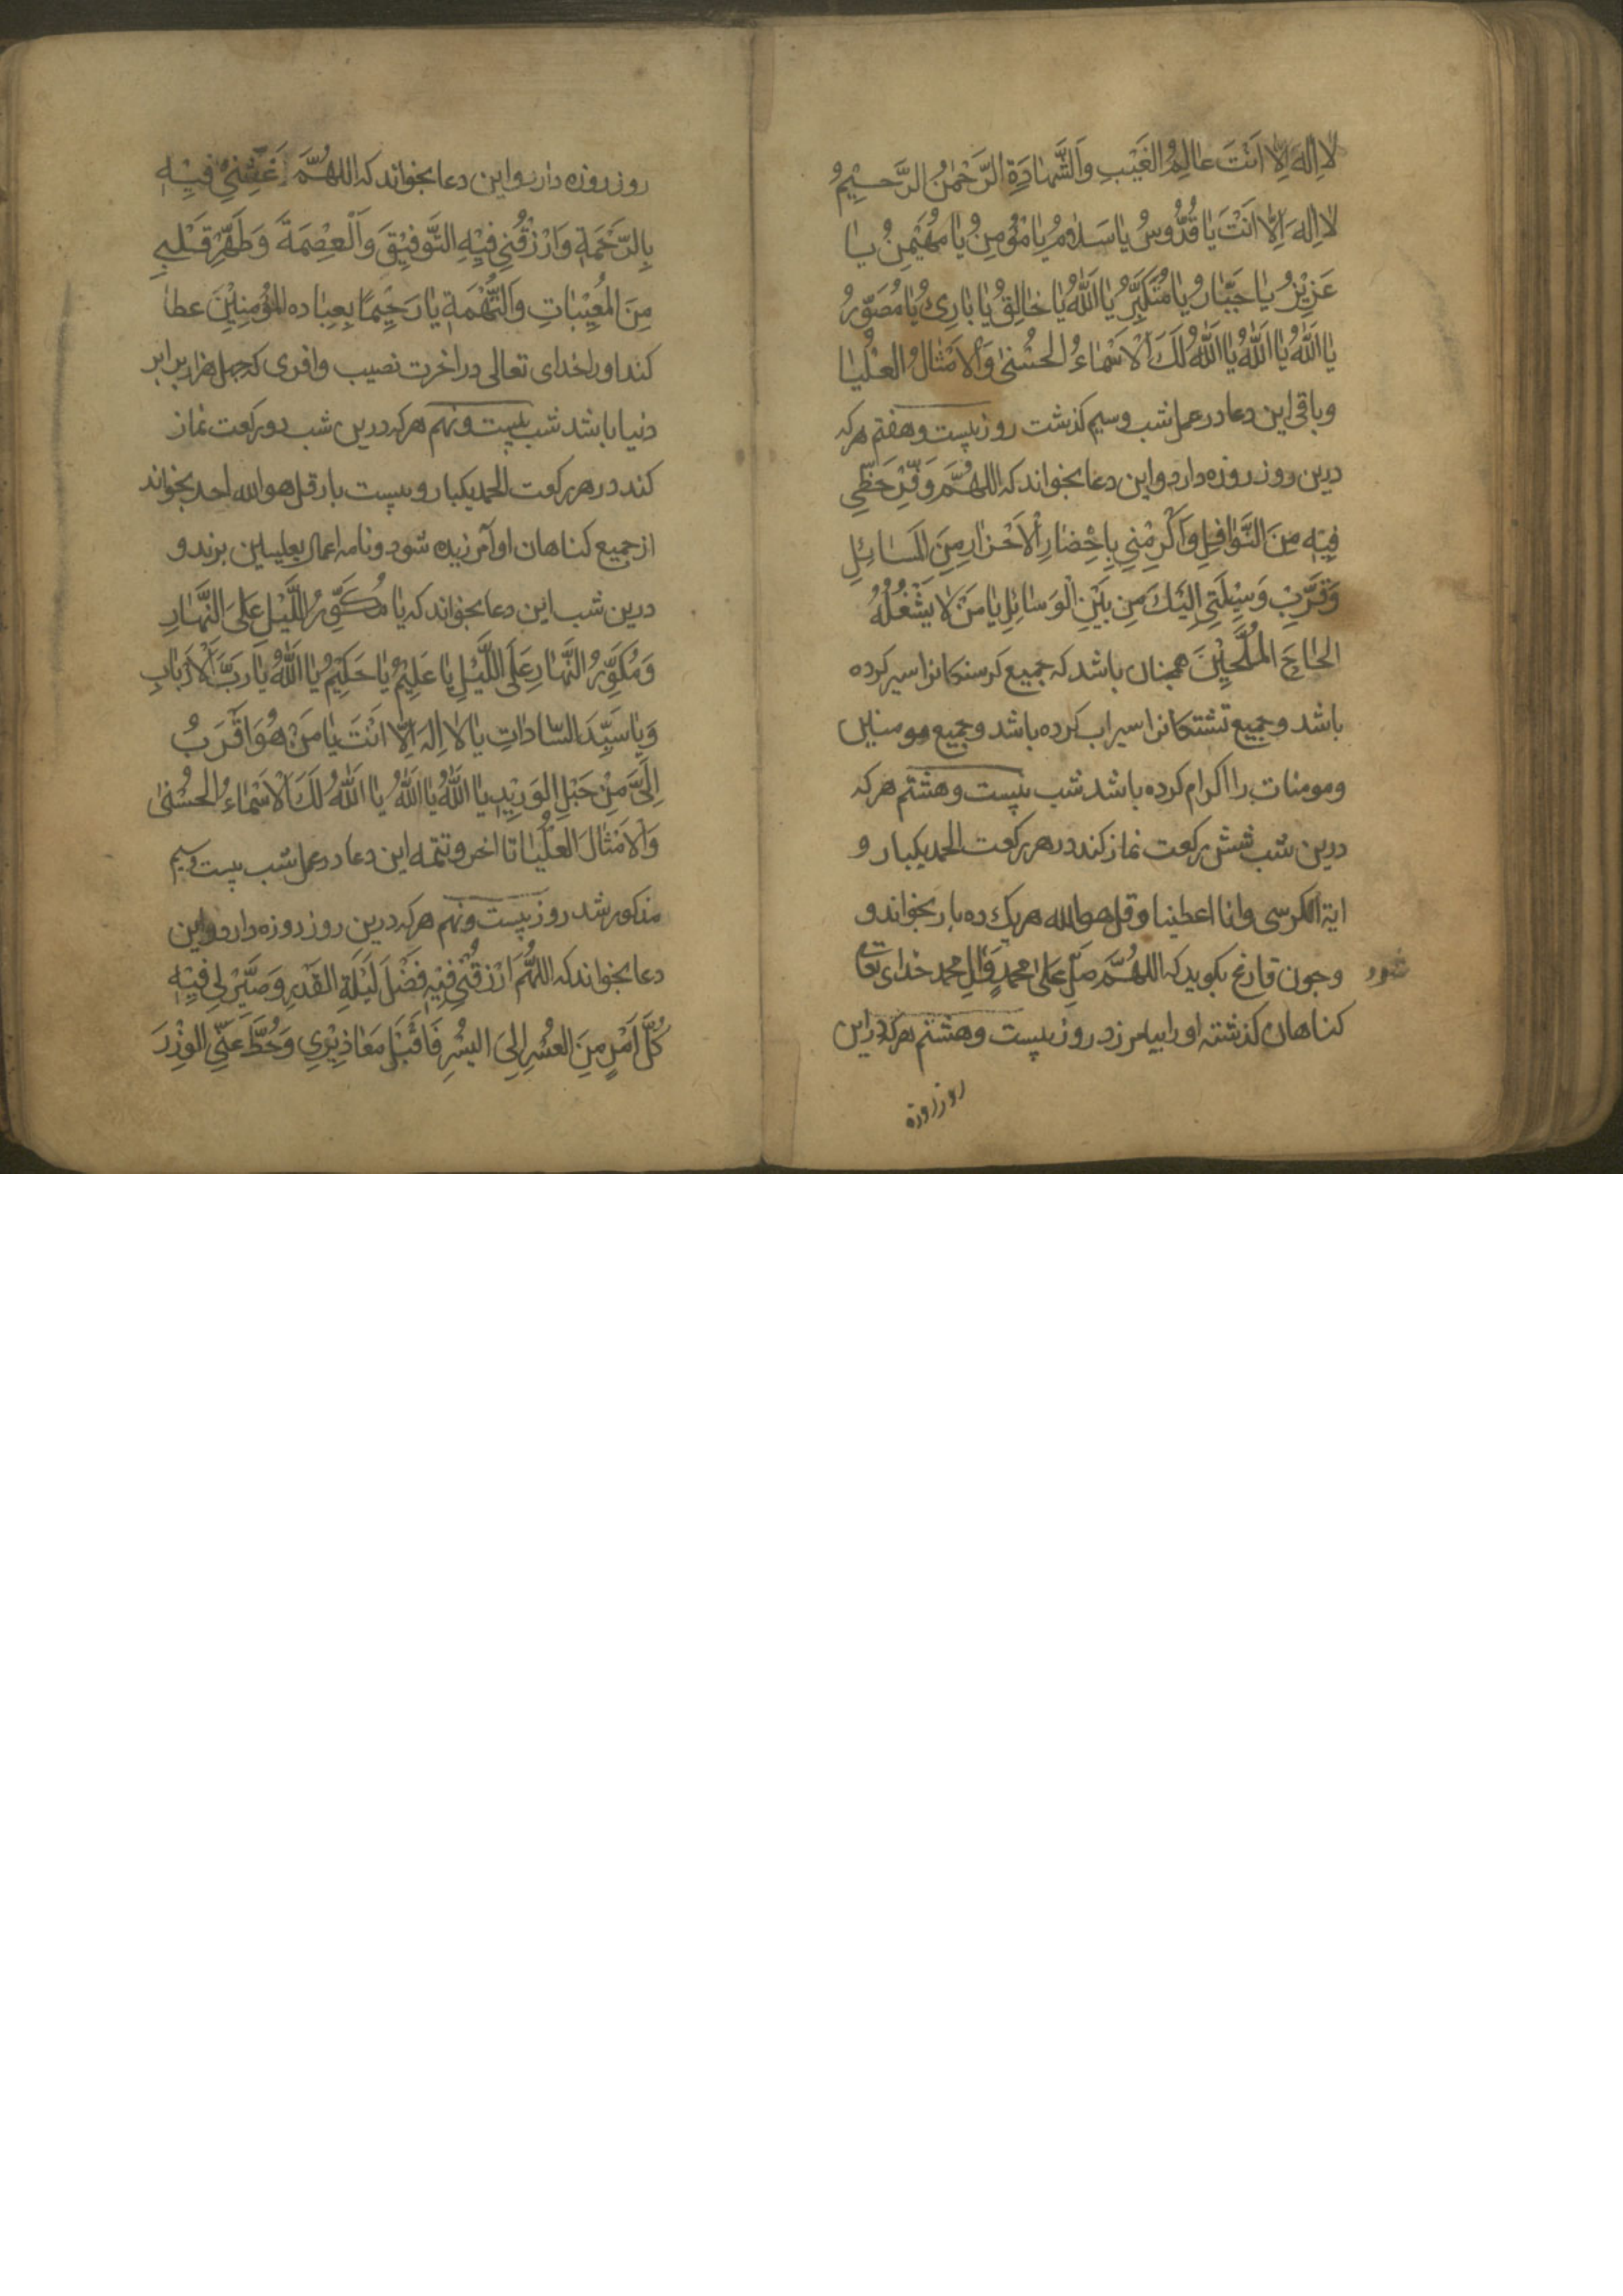 لا اِلهَ اِلّا اَنتَ عالِمُ الغَيْبِ وَالشَّهادَةِ الرَّحْمٰنُ الرَّحيمُ
لا اِلهَ اِلّا اَنْتَ يا قُدُّوسُ يا سَلامُ يا مُؤمِنُ يا مُهَيْمِنُ يا
عَزيْزُ يا جَبّارُ يا مُتَكَبِّرُ يا اَللّٰهُ يا خالِقُ يا بارِئُ يا مُصَوِّرُ
يا اَللّٰهُ يا اَللّٰهُ يا اَللّٰهُ لَكَ الْاَسْماءُ الحُسْنىٰ وَالاَمْثالُ العُلْيا
وباقی این دعا در عمل شب وسیم کذشت روز بیست وهفتم هرکه
درین روز روزه دارد واین دعا بخواند که اللهُمَّ وَفِّرْ حَظّي
فيْهِ مِنَ النَّوافِلِ وَاَكْرِمْني بِاِحْضارِ الْاَحْرارِ مِنَ المَسائِلِ
وَقَرِّبْ وَسيْلَتي اِلَيْكَ مِن بَيْنِ الْوَسائِلِ يا مَنْ لا يَشْغُلُهُ
الحاحُ المُلِّحيْنَ همچنان باشد که جمیع کرسنکانرا سیر کرده
باشد وجمیع تشنکانرا سیراب کرده باشد وجمیع مومنین
ومومنات را اکرام کرده باشد شب بیست وهشتم هرکه
درین شب شش رکعت نماز کند در هر رکعت الحمد یکبار و
ایة الکرسی وانا اعطینا وقل هوالله هریک ده بار بخواند و
وچون فارغ شود بکوید که اللهُمَّ صَلِّ عَلى محمدٍ وَالِ محمد خدای تعالی
کناهان کذشته او را بیامرزد روز بیست وهشتم هرکه دراین
روز روزه
روز روزه دارد واین دعا بخواند که اللهُمَّ غَشِّني فيْهِ
بِالرَّحْمَةِ وَارْزُقْني فيْهِ التَّوفيْقَ وَالْعِصْمَةَ وَطَهِّرْ قَلْبي
مِنَ المُعيْباتِ وَالتُّهْمَةِ يا رَحيْمًا بِعِباده المُؤْمِنيْنَ عطا
کند او را خدای تعالی در اخرت نصیب وافری که چهل هزار برابر
دنیا باشد شب بیست ونهم هرکه درین شب دو رکعت نماز
کند در هر رکعت الحمد یکبار وبیست بار قل هوالله احد بخواند
از جمیع کناهان او آمرزیده شود ونامه اعمال بعلیین برند و
درین شب این دعا بخواند که يا مُكَوِّرُ اللَّيْلِ عَلىَ النَّهارِ
وَمُكَوِّرُ النَّهارِ عَلَى اللَّيْلِ يا عَليْمُ يا حَكيْمُ يا اَللّٰهُ يا رَبَّ الْاَرْبابِ
وَيا سَيِّدَ السّاداتِ يا لا اِلهَ اِلّا اَنْتَ يا مَنْ هُوَ اَقْرَبُ
اِلَىَّ مِنْ حَبْلِ الوَريْدِ يا اَللّٰهُ يا اَللّٰهُ يا اَللّٰهُ لَكَ الْاَسْماءُ الحُسْنىٰ
وَالاَمْثالَ العُلْيا تا اخر وتتمه این دعا در عمل شب بیست وسیم
مذکور شد روز بیست ونهم هرکه درین روز روزه دارد واین
دعا بخواند که اللهُمَّ ارْزُقْني فيْهِ فَضْلَ لَيْلَةِ القَدْرِ وَصَيِّرْ لي فيْهِ
كُلَّ اَمْرٍ مِنَ العُسْرِ اِلىَ اليُسْرِ فَاقْبَلْ مَعاذيْري وَحُطَّ عَنّي الوِزْرَ